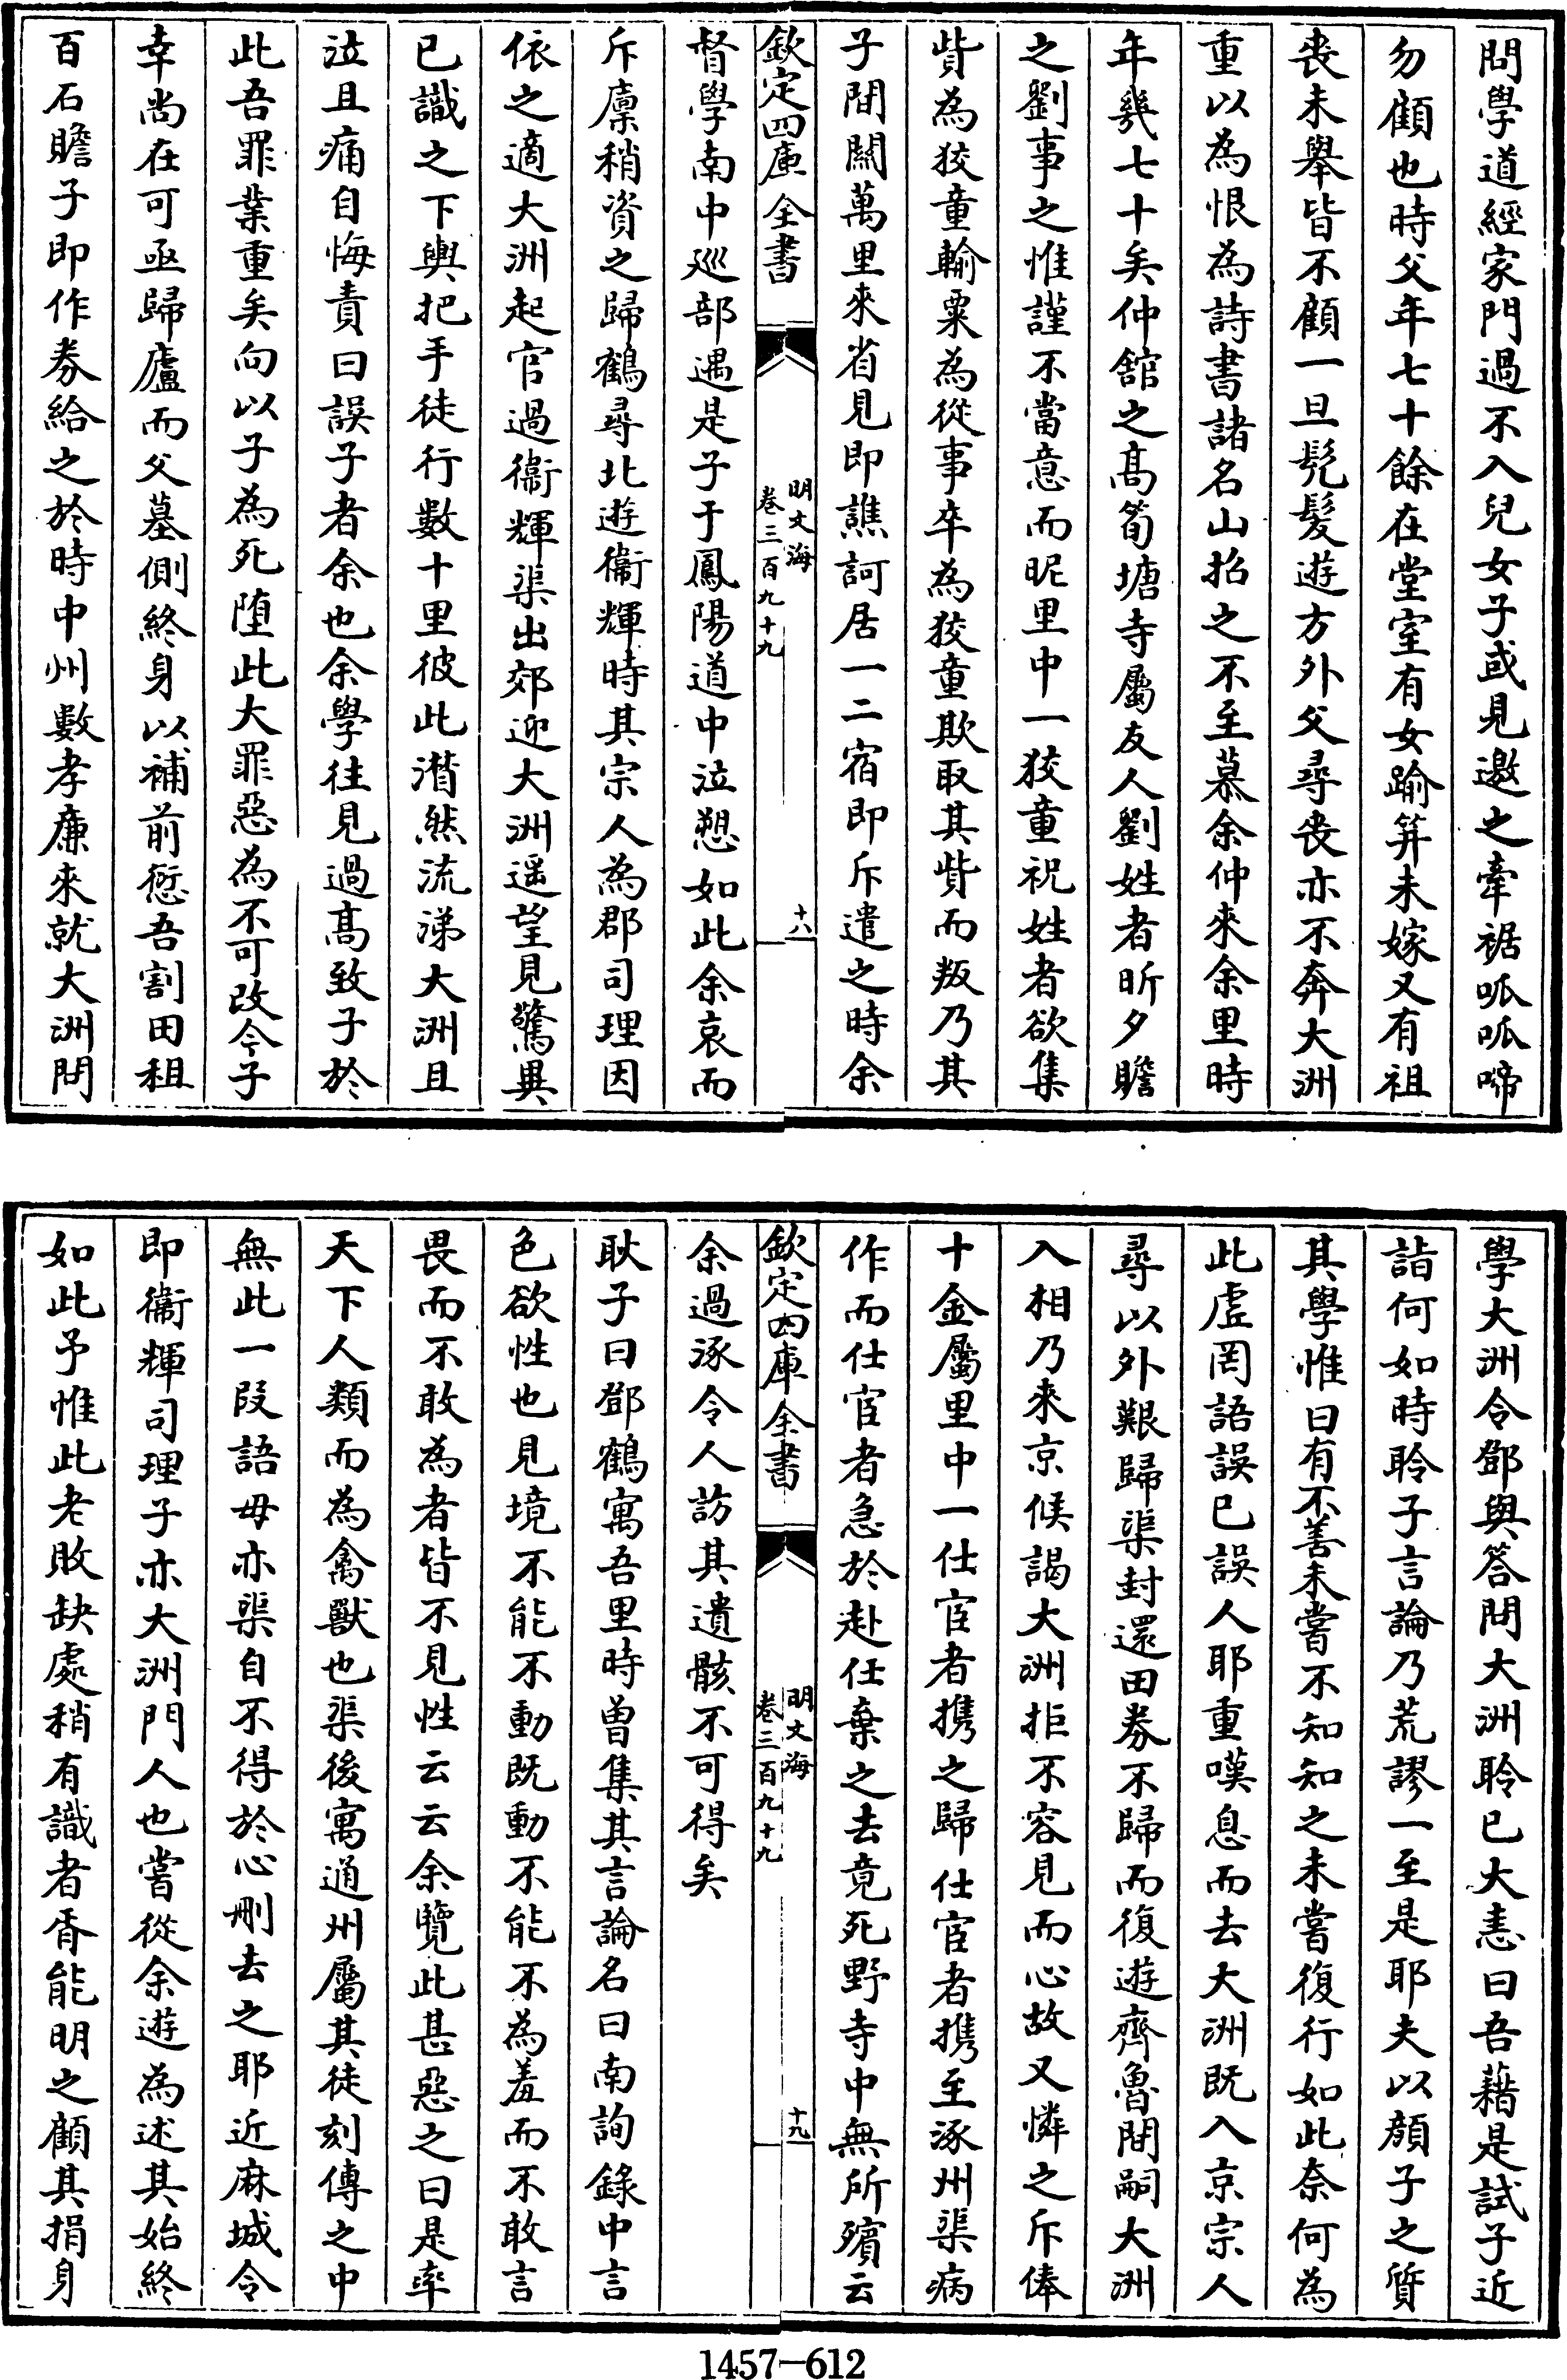 問學道經家門過不入兒女子或見邀之牽裾呱呱啼
勿顧也時父年七十餘在堂室有女踰笄未嫁又有祖
喪未舉皆不顧一旦髡髮遊方外父尋喪亦不奔大洲
重以為恨為詩書諸名山招之不至慕余仲來余里時
年幾七十矣仲舘之髙筍塘寺屬友人劉姓者昕夕贍
之劉事之惟謹不當意而昵里中一狡童祝姓者欲集
貲為狡童輸粟為從事卒為狡童欺取其貲而叛乃其
子間關萬里來省見即譙訶居一二宿即斥遣之時余
欽定四庫全書
明文海
卷三百九十九
十八
督學南中廵部遇是子于鳳陽道中泣愬如此余哀而
斥廪稍資之歸鶴尋北遊衞輝時其宗人為郡司理因
依之適大洲起官過衞輝渠出郊迎大洲遥望見驚異
已識之下輿把手徒行數十里彼此潸然流涕大洲且
泣且痛自悔責曰誤子者余也余學徃見過髙致子於
此吾罪業重矣向以子為死墮此大罪惡為不可改今子
幸尚在可亟歸廬而父墓側終身以補前愆吾割田租
百石贍子即作券給之於時中州數孝亷來就大洲問
學大洲令鄧與答問大洲聆已大恚曰吾藉是試子近
詣何如時聆子言論乃荒謬一至是耶夫以顔子之質
其學惟曰有不善未嘗不知知之未嘗復行如此奈何為
此虚罔語誤已誤人耶重嘆息而去大洲既入京宗人
尋以外艱歸渠封還田券不歸而復遊齊魯間嗣大洲
入相乃來京候謁大洲拒不容見而心故又憐之斥俸
十金屬里中一仕宦者携之歸仕宦者携至涿州渠病
作而仕宦者急於赴任棄之去竟死野寺中無所殯云
欽定四庫全書
明文海
卷三百九十九
十九
余過涿令人訪其遺骸不可得矣
耿子曰鄧鶴寓吾里時曾集其言論名曰南詢錄中言
色欲性也見境不能不動既動不能不為羞而不敢言
畏而不敢為者皆不見性云云余覽此甚惡之曰是率
天下人類而為禽獸也渠後寓通州屬其徒刻傳之中
無此一段語毋亦渠自不得於心刪去之耶近麻城令
即衞輝司理子亦大洲門人也嘗從余遊為述其始終
如此予惟此老敗缺處稍有識者胥能明之顧其捐身
1457—612